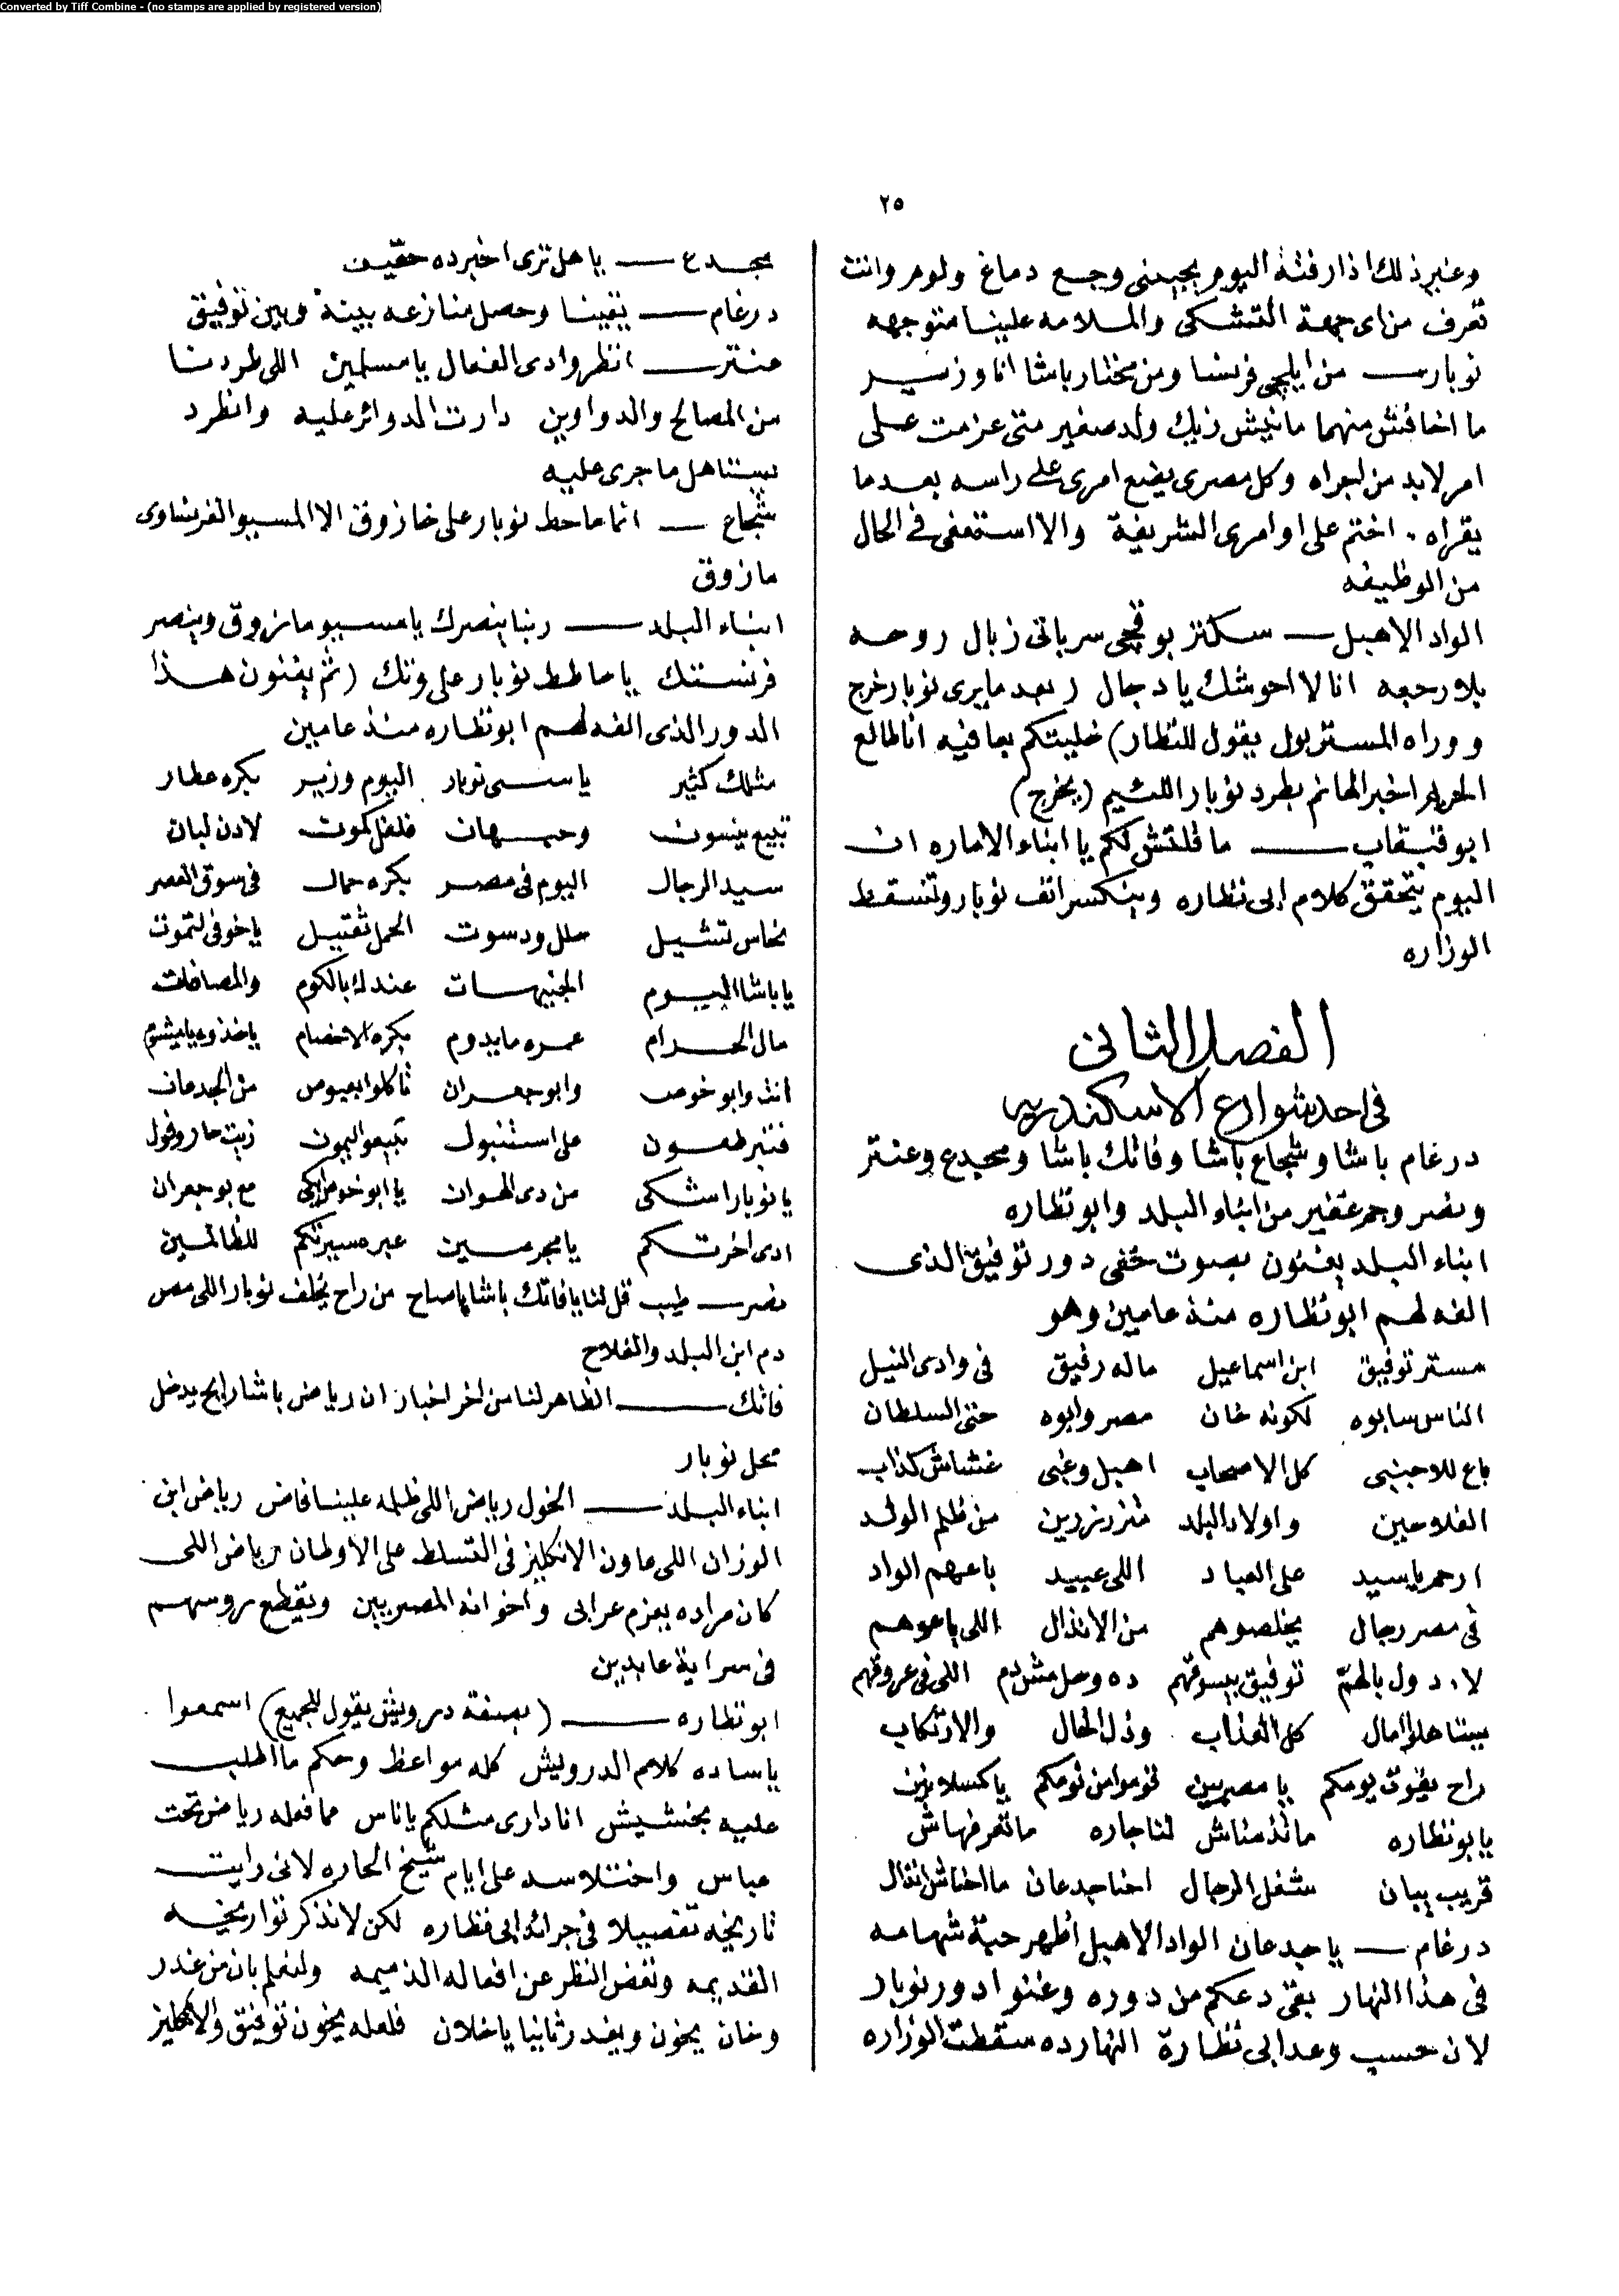 Converted by Tiff Combine - (no stamps are applied by registered version)
٢٥
وغير ذلك اذا رفته اليوم يجيبنى وجع دماغ ولوم وانت
تعرف من اى جهة التشكى والملامه علينا متوجهه
نوبار — من ايلچى فرنسا ومن مختار باشا انا وزير
ما اخافش منهما مانيش زيك ولد صغير متى عزمت على
امر لابد من اجراه وكل مصرى يضع امرى على راسه بعد ما
يقراه . اختم على اوامرى الشريفة والا استعفى فى الحال
من الوظيفه
الواد الاهبل — سكتر بوقچى سرباتى زبال روحه
بلا رجعه انا لا احوشك يا دجال (بعد ما يرى نوبار خرج
ووراه المستربول يقول للنظار) خليتكم بعافيه انا طالع
الحرم اخبر الهانم بطرد نوبار اللئيم (يخرج)
ابو قنقاب — ما قلتش لكم يا ابناء الاماره ان
اليوم يتحقق كلام ابى نظاره وينكسر انف نوبار وتسقط
الوزاره
الفصل الثانى
فى احد شوارع الاسكندريه
درغام باشا وشجاع باشا وفاتك باشا ومجدع وعنتر
ونصر وجم غفير من ابناء البلد وابو نظاره
ابناء البلد يغنون بصوت خفى دور توفيق الذى
الفه لهم ابو نظاره منذ عامين وهو
مستر توفيق ابن اسماعيل ماله رفيق فى وادى النيل
الناس سابوه لكونه خان مصر وابوه حتى السلطان
باع للاجنبى كل الاصحاب اهبل وغبى غشاش كذاب
الفلاحين واولاد البلد من ظلم الولد
ارحم يا سيد على العباد اللى عبيد باعهم الواد
فى مصر رجال يخلصوهم من الانذال اللى باعوهم
لا دول بالهمّ توفيق بيسوقهم ده وحل مش دم اللى فى عروقهم
يستاهلوا امال كل العذاب وذل الحال والارتكاب
راح يفوت يومكم يا مصريين قوموا من نومكم يا كسلانين
يا بو نظاره ما تذمناش لنا جاره ما تعرفهاش
قريب يبان شغل الرجال احنا جدعان ما احناش انذال
درغام — يا جدعان الواد الاهبل اظهر حبة شهامه
فى هذا النهار بقى دعكم من دوره وغنوا دور نوبار
لان حسب وعد ابى نظارة النهارده سقطت الوزاره
مجدع — يا هل ترى اخبرده حقيق
درغام — يقينا وحصل منازعه بينه وبين توفيق
عنتر — انظروا دى الفعال يا مسلمين اللى طردنا
من المصالح والدواوين دارت الدوائر عليه وانطرد
يستاهل ما جرى عليه
شجاع — انما ما حط نوبار على خازوق الا المسيو الفرنساوى
مازوق
ابناء البلد — ربنا ينصرك يا مسيو مازوق وينصر
فرنستك ياما طط نوبار على ونك (ثم يغنون هذا
الدور الذى الفه لهم ابو نظاره منذ عامين
مثلك كثير يا سى نوبار اليوم وزير بكره عطار
تبيع ينسون وحبهان فلفل كمون لادن لبان
سيد الرجال اليوم فى مصر بكره حمال فى سوق العصر
نحاس تشيل حلل ودسوت الحمل ثقيل يا خوفى لتموت
يا باشا اليوم الجنيهات عندك بالكوم والمصاغات
مال الحرام عمره ما يدوم بكره الاخصام ياخذوه يا ميشوم
انت وابو خوص وابو جعران تاكلوا بعبوص من الجدعان
فتبرطعون على استنبول تبيعوا ليمون زيت حار وفول
يا نوبار اشكى من دى الهوان يا ابو خوص ابكى مع بو جعران
ادى اخرتكم يا مجرمين عبره سيرتكم للظالمين
نصر — طيب قل لنا يا فاتك باشا يا صاح من راح يخلف نوبار اللى مص
دم ابن البلد والفلاح
فاتك — الظاهر لنا من اخر اخبار ان رياض باشا رايح يدخل
محل نوبار
ابناء البلد — الخول رياض اللى ظلمه علينا فاض رياض ابن
الوزان اللى عاون الانكليز فى التسلط على الاوطان رياض اللى
كان مراده يعزم عرابى واخوانه المصريين ويقطع روسهم
فى سراية عابدين
ابو نظاره — (بصفة درويش يقول للجميع) اسمعوا
يا ساده كلام الدرويش كله مواعظ وحكم ما اطلب
عليه بخشيش انا دارى مثلكم يا ناس مما فعله رياض تحت
عباس واختلاسه على ايام شيخ الحاره لانى رايت
تاريخه تفصيلا فى جرائد ابى نظاره لكن لا نذكر تواريخه
القديمه ونغض النظر عن افعاله الذميمه ولنعلم بان من غدر
وخان يخون ويغدر ثانيا يا خلان فلعله يخون توفيق والانكليز